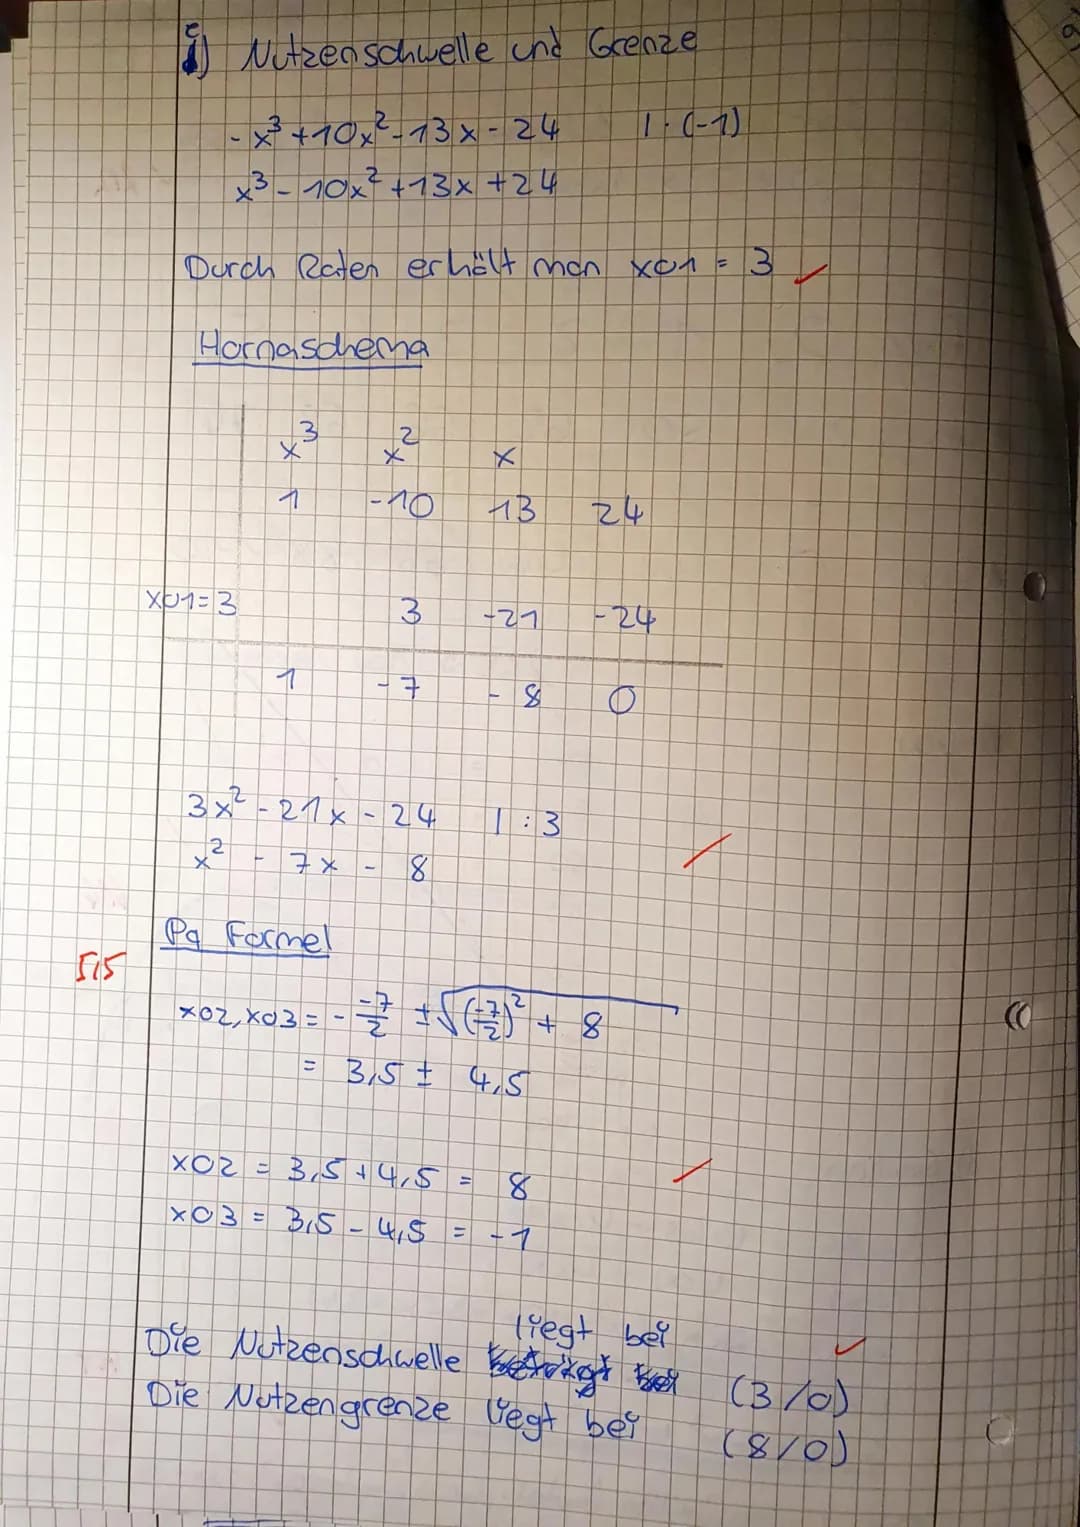 e) Nutzenschwelle und Grenze
-x³+10x²-13x-24 | · (-1)
x³-10x²+13x+24
Durch Raten erhält man x01 = 3 ✓
Hornaschema
x³ x² x
1 -10 13 24
x01=3 3 -21 -24
1 -7 -8 0
3x²-21x-24 | :3
x² - 7x - 8
Pq Formel
5,5
x02,x03 = - -7/2 ± √(-7/2)² + 8
= 3,5 ± 4,5
x02 = 3,5+4,5 = 8
x03 = 3,5-4,5 = -1
Die Nutzenschwelle liegt bei (3/0)
Die Nutzengrenze liegt bei (8/0)